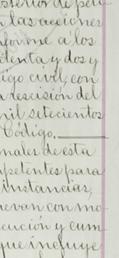 osterior de peri
n las acciones
nforme a los
chenta y dos y
digo civil, con
a rescision del
mil setecientos
Código.
nales de esta
petentes para
instancias,
uevan con mo
cucion y cum
que incluye